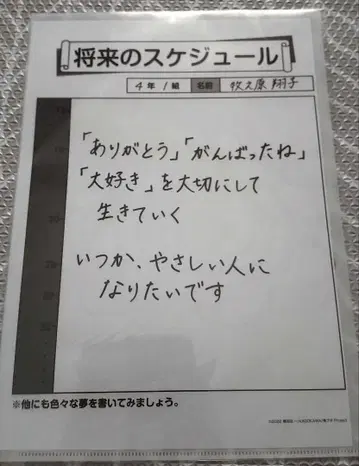 将来のスケジュール
4年 1組 名前 牧之原翔子
「ありがとう」「がんばったね」
「大好き」を大切にして
生きていく
いつか、やさしい人に
なりたいです
※他にも色々な夢を書いてみましょう。